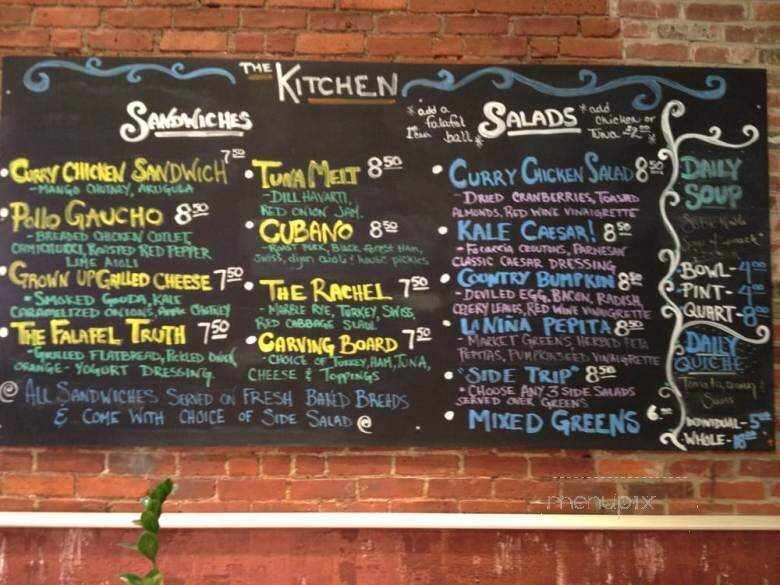 THE KITCHEN
SANDWICHES
CURRY CHICKEN SANDWICH 7 50
- MANGO CHUTNEY, ARUGULA
POLLO GAUCHO 8 50
- BREADED CHICKEN CUTLET,
CHIMICHURRI, ROASTED RED PEPPER
LIME AIOLI
GROWN UP GRILLED CHEESE 7 50
- SMOKED GOUDA, KALE
CARAMELIZED ONIONS, APPLE CHUTNEY
THE FALAFEL TRUTH 7 50
- GRILLED FLATBREAD, PICKLED ONION
ORANGE - YOGURT DRESSING.
TUNA MELT 8 50
- DILL HAVARTI,
RED ONION JAM.
CUBANO 8 50
- ROAST PORK, BLACK FOREST HAM,
SWISS, dijon aioli & house pickles
THE RACHEL 7 50
- MARBLE RYE, TURKEY, SWISS,
RED CABBAGE SLAW
CARVING BOARD 7 50
- CHOICE OF TURKEY, HAM, TUNA,
CHEESE & TOPPINGS
@ ALL SANDWICHES SERVED ON FRESH BAKED BREADS
& COME WITH CHOICE OF SIDE SALAD @
* add a
falafel
ball *
SALADS
* add
chicken or
Tuna - 2 00 *
CURRY CHICKEN SALAD 8 50
- DRIED CRANBERRIES, TOASTED
ALMONDS, RED WINE VINAIGRETTE
KALE CAESAR! 8 50
- FOCACCIA CROUTONS, PARMESAN
CLASSIC CAESAR DRESSING
COUNTRY BUMPKIN 8 50
- DEVILED EGG, BACON, RADISH,
CELERY LEAVES, RED WINE VINAIGRETTE
LA NIÑA PEPITA 8 50
- MARKET GREENS, HERBED FETA
PEPITAS, PUMPKINSEED VINAIGRETTE
"SIDE TRIP" 8 50
- CHOOSE ANY 3 SIDE SALADS
SERVED OVER GREENS
MIXED GREENS 6
DAILY
SOUP
BOWL - 4 00
PINT - 4 00
QUART - 8 00
DAILY
QUICHE
&
Swiss
INDIVIDUAL - 5
WHOLE - 18 00
menupix